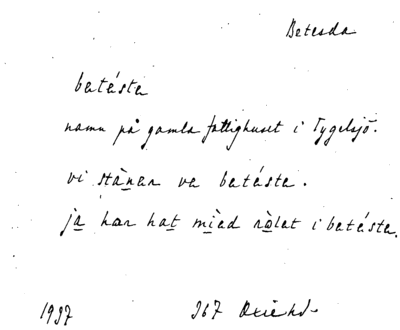 Betesda
batésta
namn på gamla fattighuset i Tygelsjö.
vi stànar ve batésta.
ja har hat mied ròlet i batésta.
1937 367 Oxie hd.